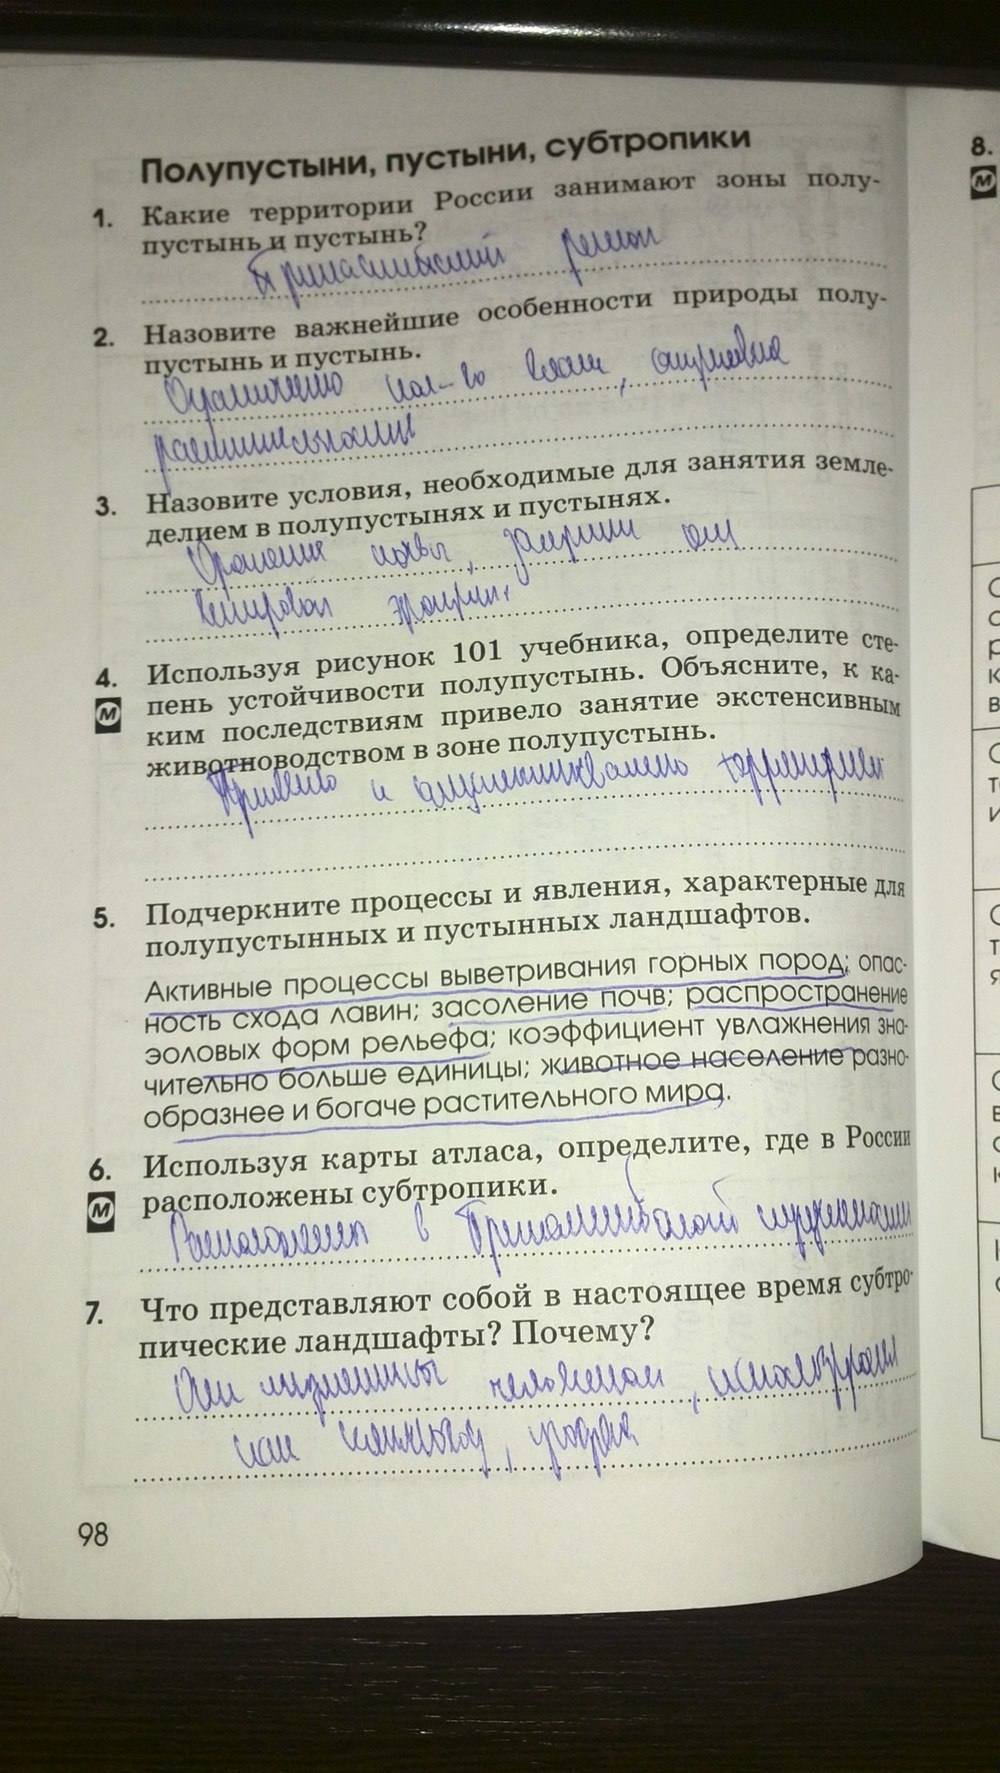 Полупустыни, пустыни, субтропики
1. Какие территории России занимают зоны полу-
пустынь и пустынь?
Прикаспийский регион
2. Назовите важнейшие особенности природы полу-
пустынь и пустынь.
Ограничено кол-во влаги,
растительности
3. Назовите условия, необходимые для занятия земле-
делием в полупустынях и пустынях.
Орошение почвы, защита от
ветровой эрозии.
4. Используя рисунок 101 учебника, определите сте-
М
пень устойчивости полупустынь. Объясните, к ка-
ким последствиям привело занятие экстенсивным
животноводством в зоне полупустынь.
Привело к опустыниванию территории
5. Подчеркните процессы и явления, характерные для
полупустынных и пустынных ландшафтов.
Активные процессы выветривания горных пород; опас-
ность схода лавин; засоление почв; распространение
эоловых форм рельефа; коэффициент увлажнения зна-
чительно больше единицы; животное население разно-
образнее и богаче растительного мира.
6. Используя карты атласа, определите, где в России
М
расположены субтропики.
Расположены в
7. Что представляют собой в настоящее время субтро-
пические ландшафты? Почему?
Они изменены человеком,
как
98
8.
М